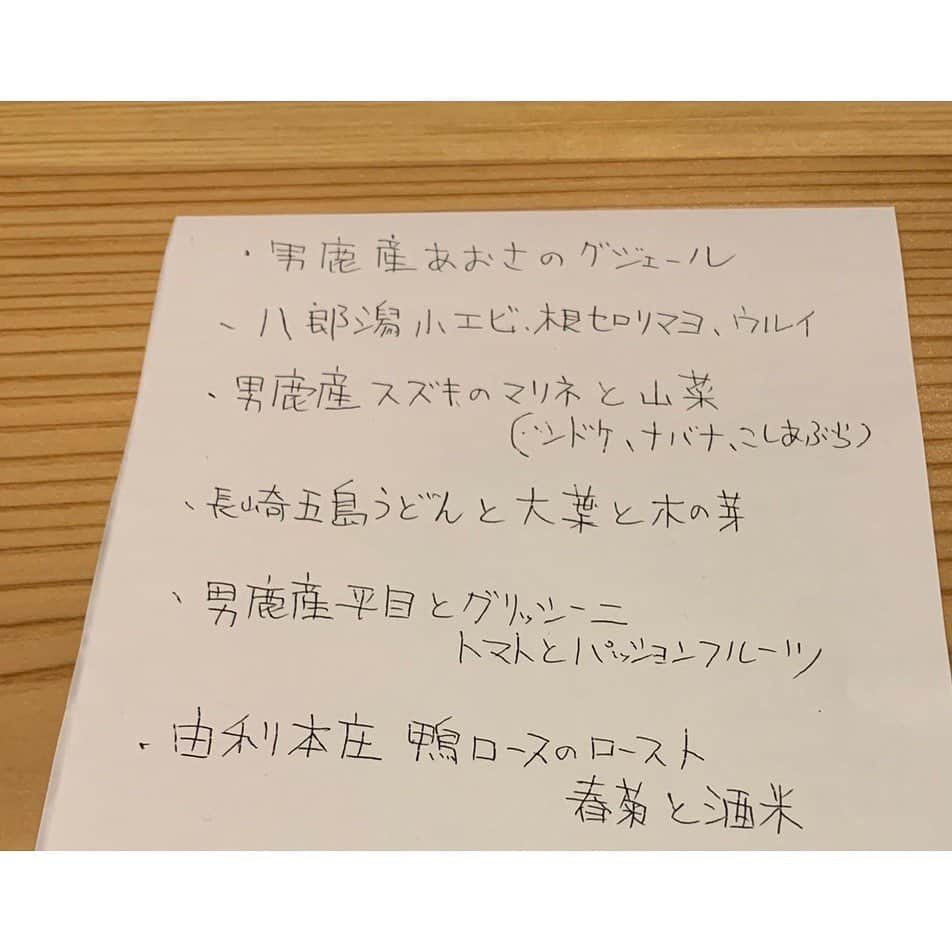 ・男鹿産あおさのグジェール
、八郎潟小エビ、根セロリマヨ、ウルイ
・男鹿産スズキのマリネと山菜
(シドケ、ナバナ、こしあぶら)
、長崎五島うどんと大葉と木の芽
、男鹿産平目とグリッシーニ
トマトとパッションフルーツ
・由利本庄 鴨ロースのロースト
春菊と酒米